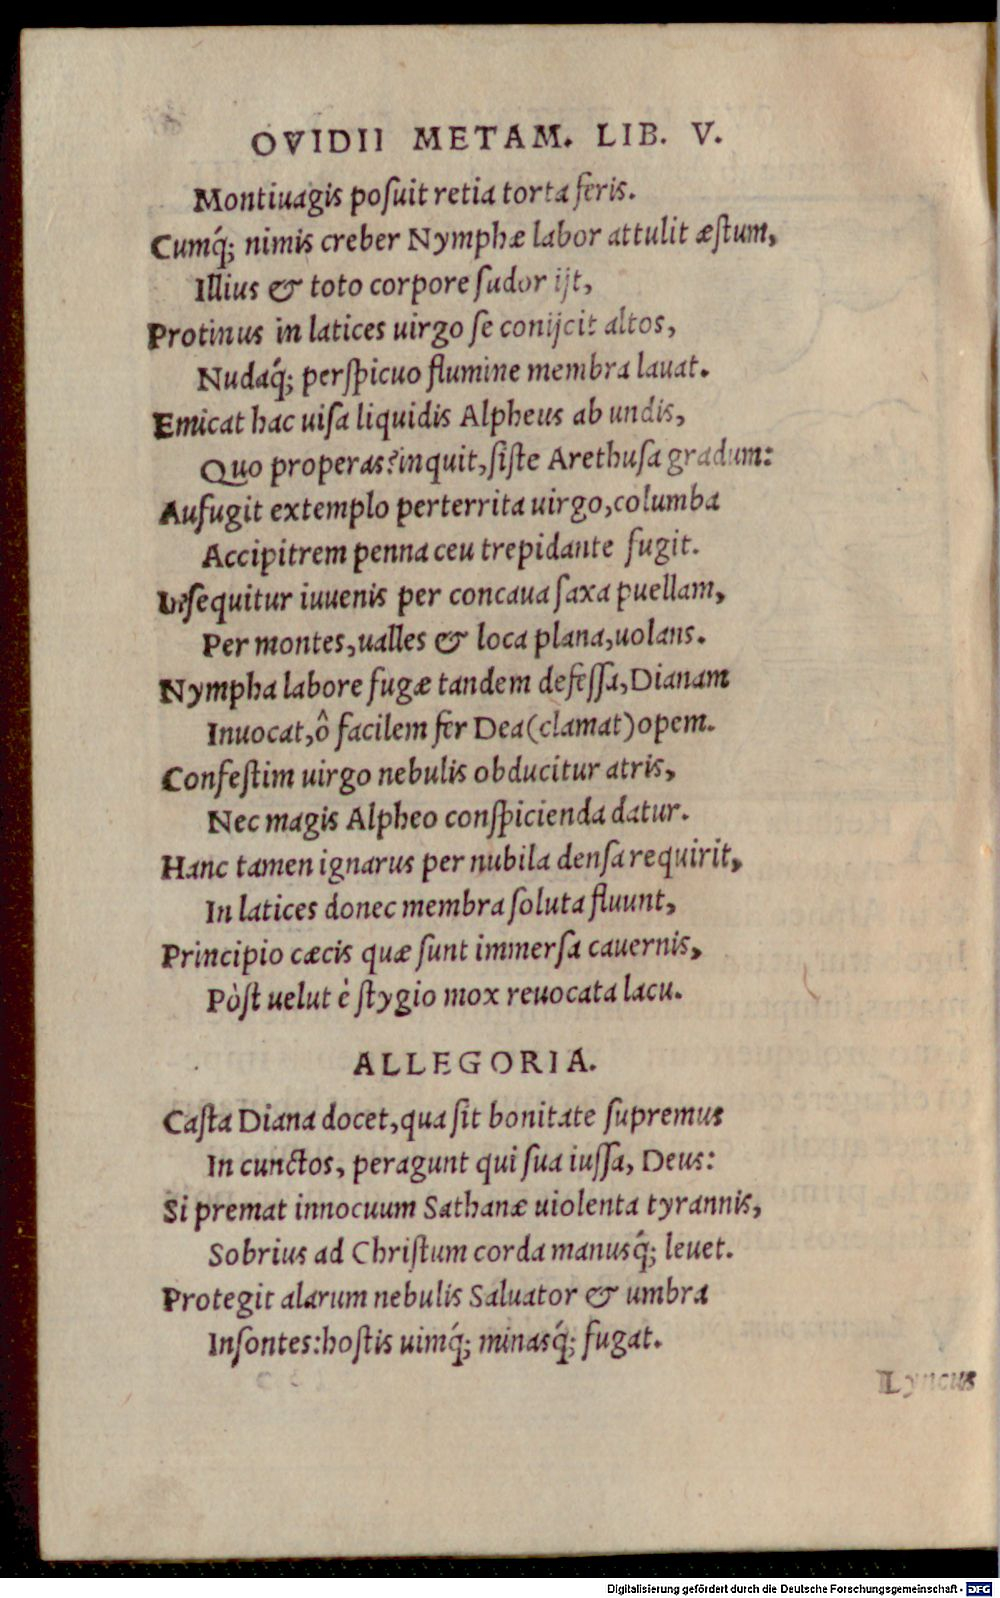 OVIDII METAM. LIB. V.
Montiuagis poſuit retia torta feris.
Cumq́; nimis creber Nymphæ labor attulit æſtum,
Illius & toto corpore ſudor ijt,
Protinus in latices uirgo ſe conijcit altos,
Nudaq́; perſpicuo flumine membra lauat.
Emicat hac uiſa liquidis Alpheus ab undis,
Quo properas? inquit, ſiſte Arethuſa gradum:
Aufugit extemplo perterrita uirgo, columba
Accipitrem penna ceu trepidante fugit.
Inſequitur iuuenis per concaua ſaxa puellam,
Per montes, ualles & loca plana, uolans.
Nympha labore fugæ tandem defeſſa, Dianam
Inuocat, ô facilem fer Dea (clamat) opem.
Confeſtim uirgo nebulis obducitur atris,
Nec magis Alpheo conſpicienda datur.
Hanc tamen ignarus per nubila denſa requirit,
In latices donec membra ſoluta fluunt,
Principio cæcis quæ ſunt immerſa cauernis,
Pòſt uelut è ſtygio mox reuocata lacu.
ALLEGORIA.
Caſta Diana docet, qua ſit bonitate ſupremus
In cunctos, peragunt qui ſua iuſſa, Deus:
Si premat innocuum Sathanæ uiolenta tyrannis,
Sobrius ad Chriſtum corda manusq́; leuet.
Protegit alarum nebulis Saluator & umbra
Inſontes: hoſtis uimq́; minasq́; fugat.
Lyncus
Digitalisierung gefördert durch die Deutsche Forschungsgemeinschaft - DFG